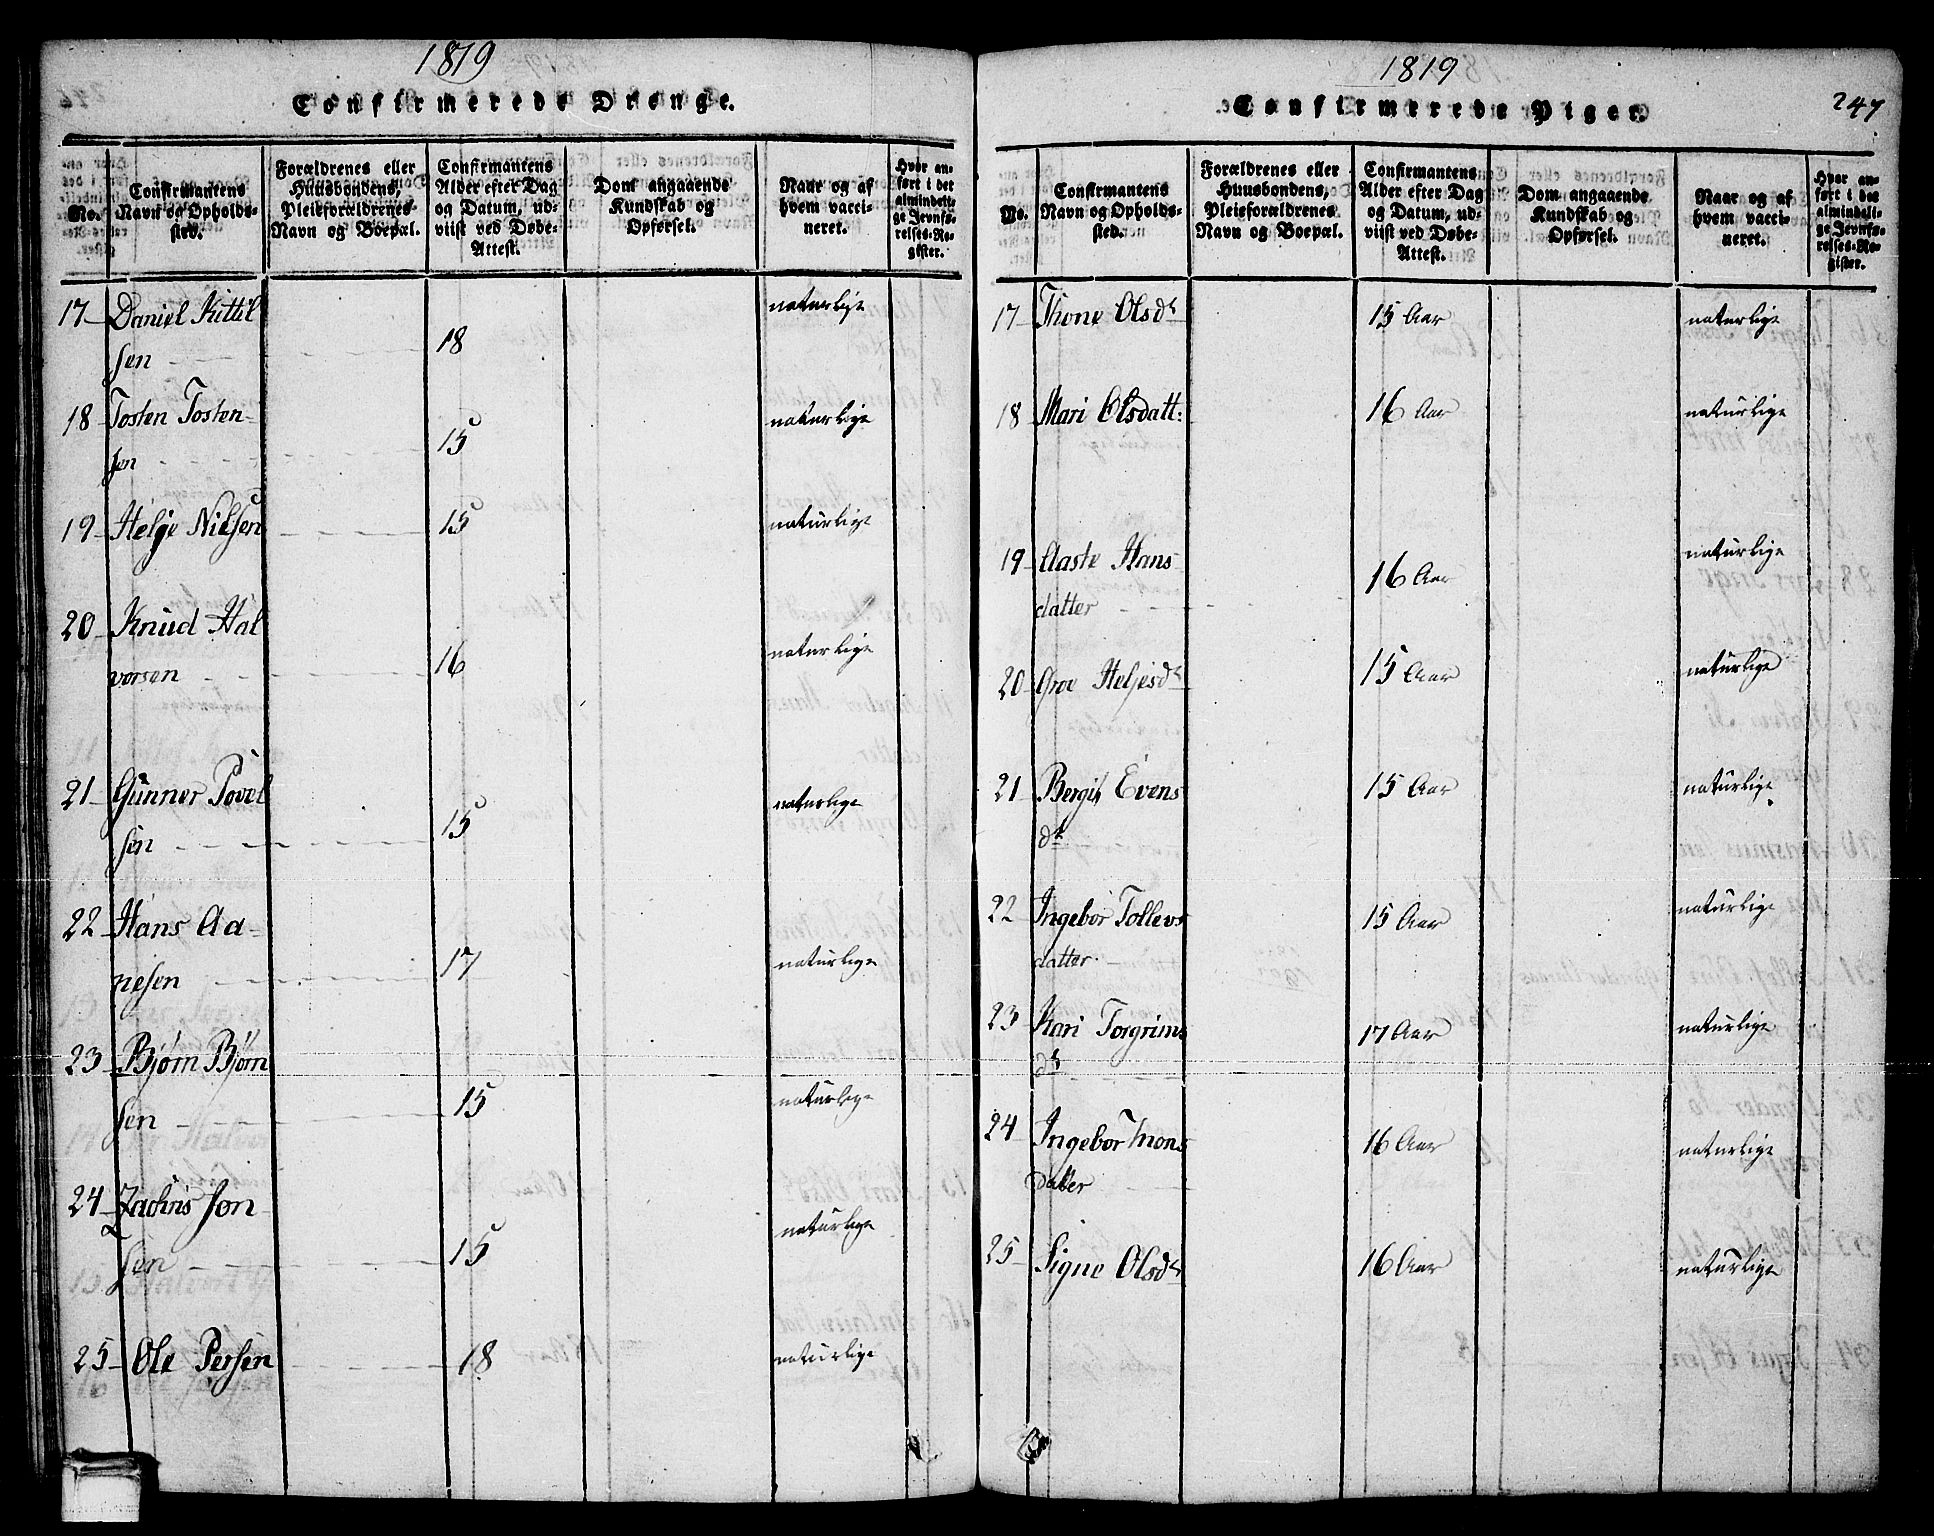 1819
Confirmerede Drenge.
No.
Confirmantens Navn og Opholds-sted.
Forældrenes eller Huusbondens, Pleieforældrenes Navn og Boepæl.
Confirmantens Alder efter Dag og Datum, ud-viist ved Døbe-Attest.
Dom angaaende Kundskab og Opførsel.
Naar og af hvem vacci-neret.
Hvor an-ført i det almindeli-ge Jevnfø-relses-Re-gister.
17 Daniel Kittil
sen 18 naturlige
18 Tosten Tosten-
sen 15 naturlige
19 Helje Nilsen 15 naturlige
20 Knud Hal
vorsen 16 naturlige
21 Gunner Povel
sen 15 naturlige
22 Hans Aa-
nesen 17 naturlige
23 Bjørn Bjørn
sen 15 naturlige
24 Zachris Jon
sen 15 naturlige
25 Ole Persen 18 naturlige
1819
Confirmerede Piger.
247
No.
Confirmantens Navn og Opholds-sted.
Forældrenes eller Huusbondens, Pleieforældrenes Navn og Boepæl.
Confirmantens Alder efter Dag og Datum, ud-viist ved Døbe-Attest.
Dom angaaende Kundskab og Opførsel.
Naar og af hvem vacci-neret.
Hvor an-ført i det almindeli-ge Jevnfø-relses-Re-gister.
17 Thone Olsdr 15 Aar naturlige
18 Mari Olsdatt: 16 Aar naturlige
19 Aaste Hans
datter 16 Aar naturlige
20 Groe Heljesdr 15 Aar naturlige
21 Bergit Evens
dr 15 Aar naturlige
22 Ingebor Tollevs
datter 15 Aar naturlige
23 Kari Torgrims
dr 17 Aar naturlige
24 Ingebor Thons
datter 16 Aar naturlige
25 Signe Olsdr 16 Aar naturlige